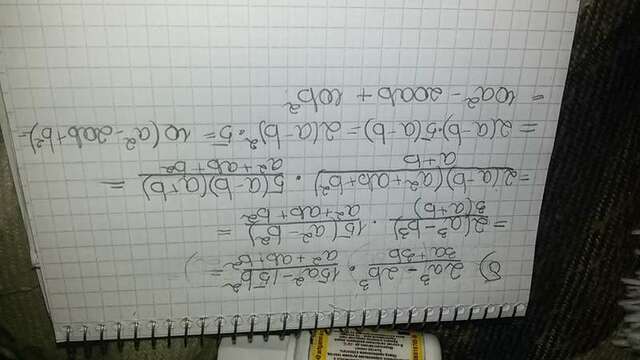 б) (2a³ - 2b³)/(3a+3b) · (15a² - 15b²)/(a² + ab + b²) =
= 2(a³ - b³)/3(a+b) · 15(a² - b²)/(a² + ab + b²) =
= 2(a-b)(a² + ab + b²)/(a+b) · 5(a-b)(a+b)/(a² + ab + b²) =
= 2(a-b)·5(a-b) = 2(a-b)²·5 = 10(a² - 2ab + b²) =
= 10a² - 20ab + 10b²